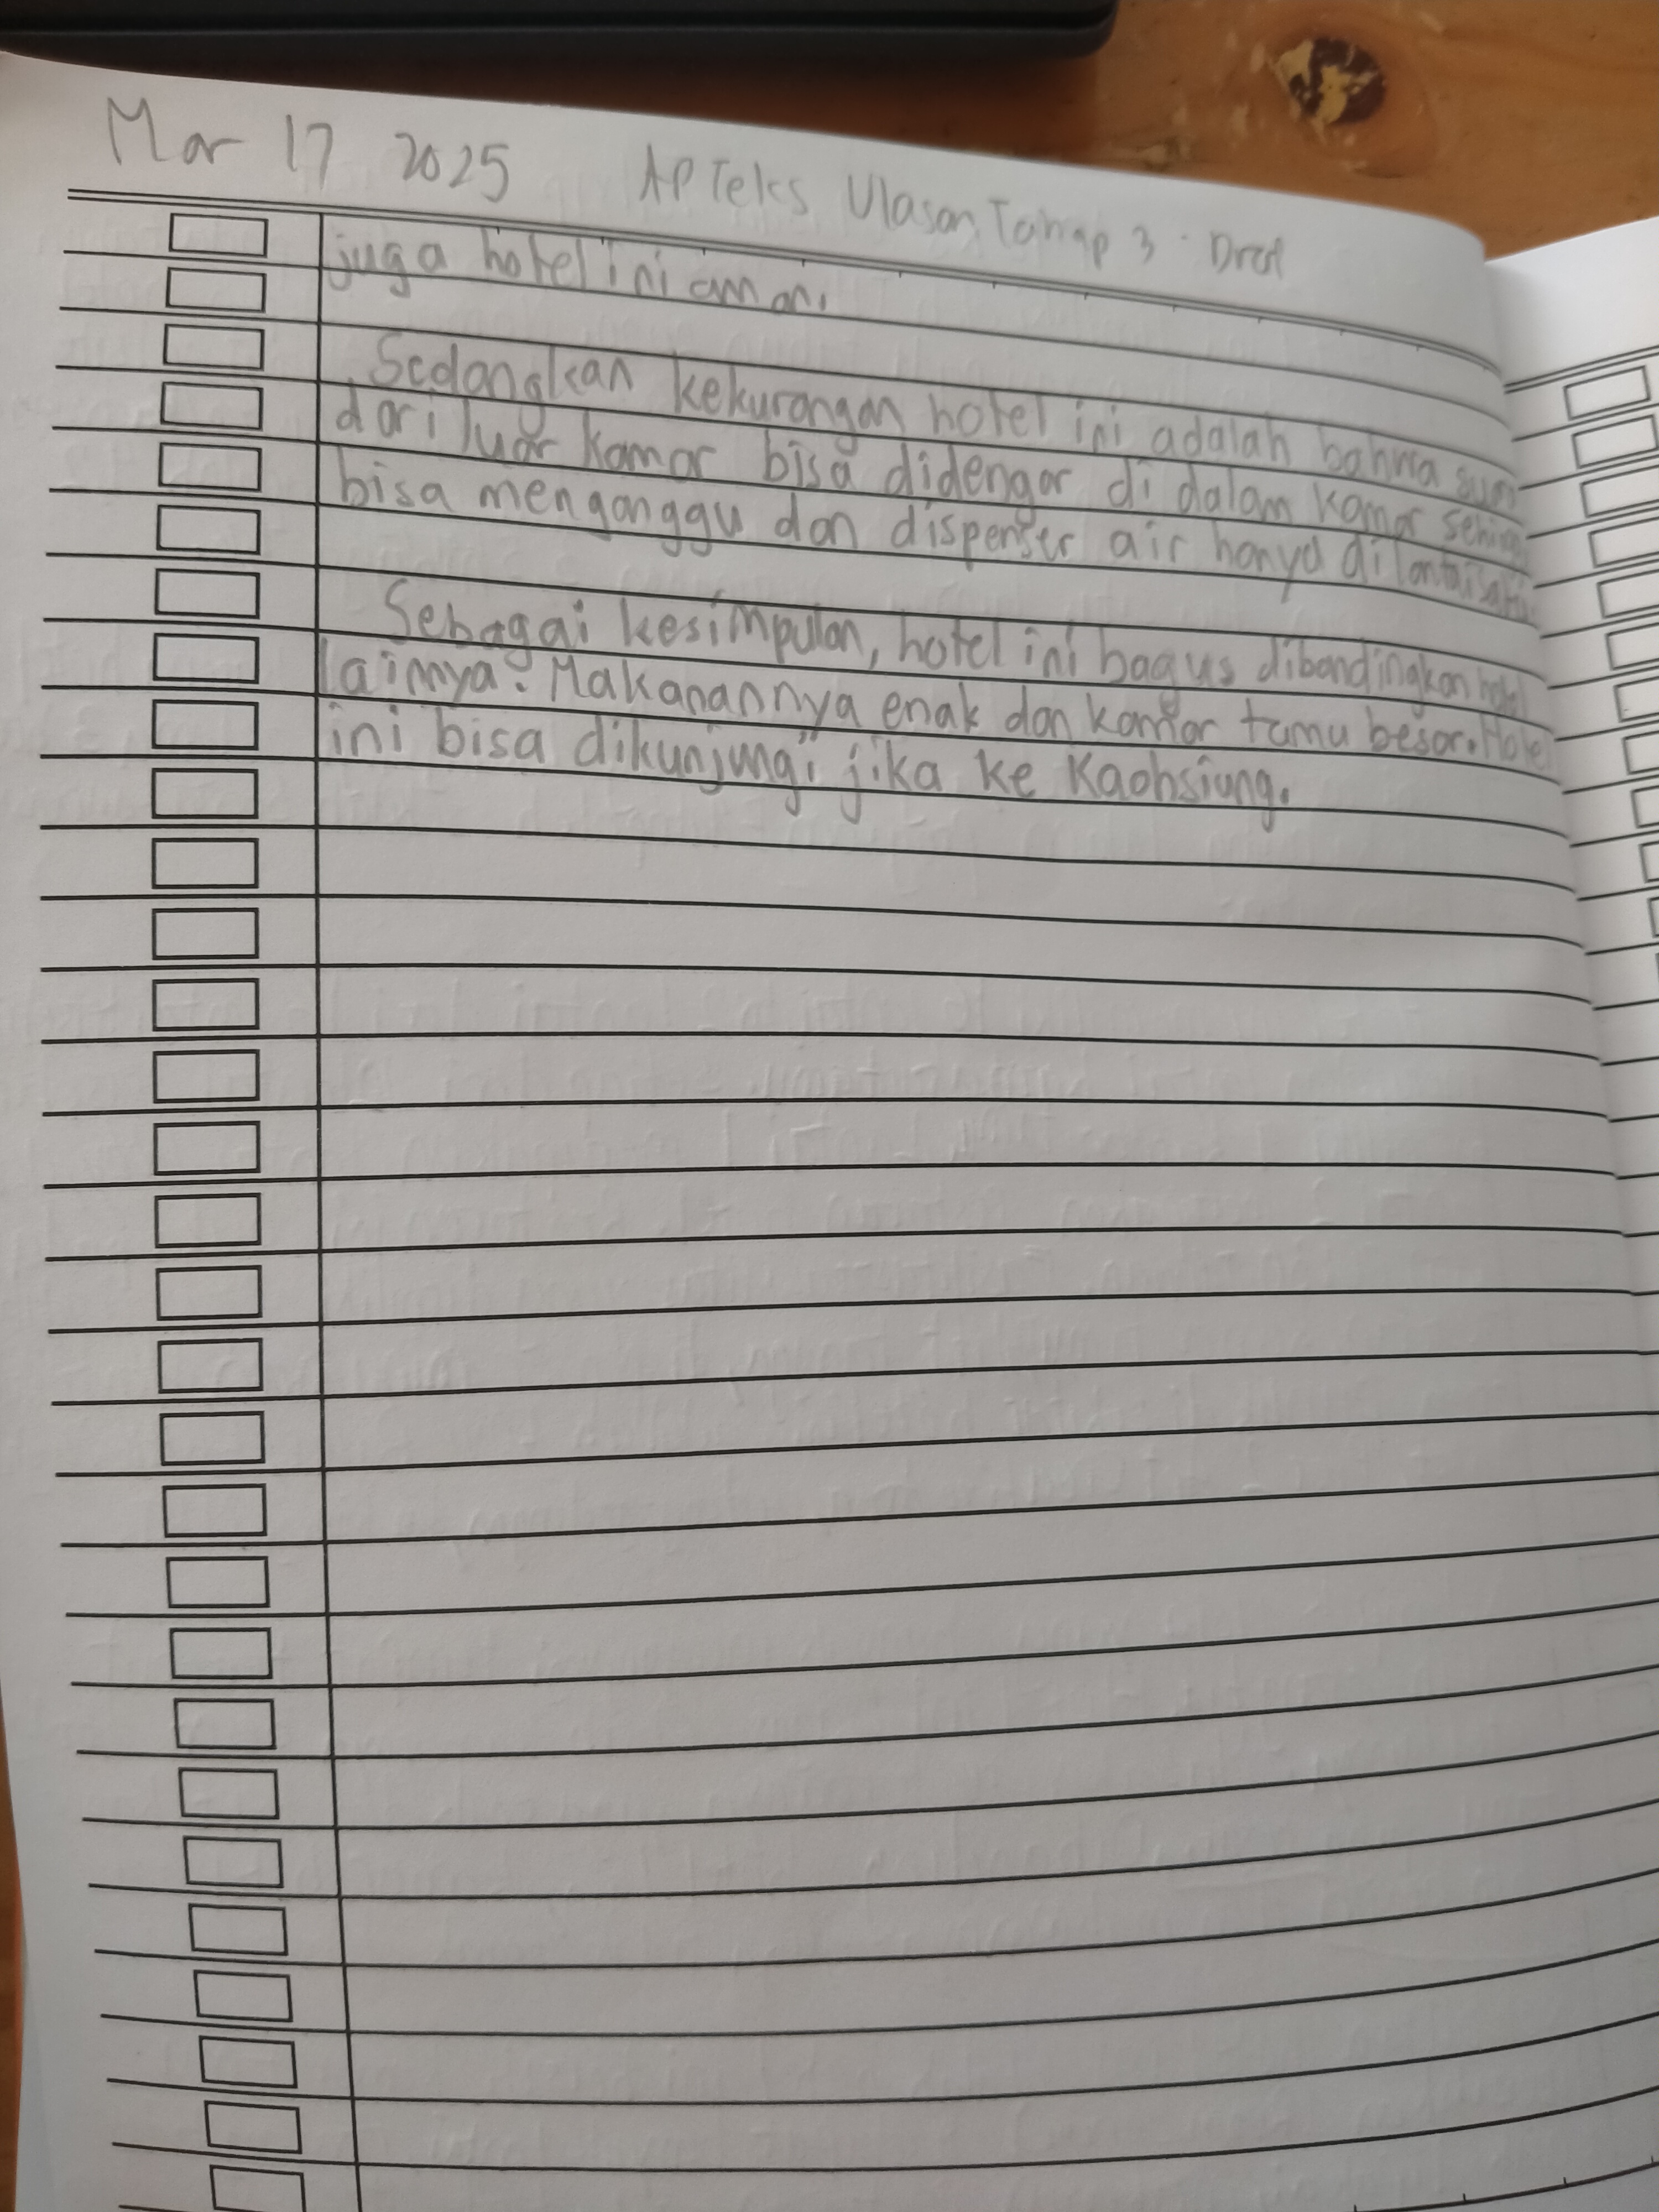 Mar 17 2025 AP Teks Ulasan Tahap 3 - Draf
juga hotel ini aman.
Sedangkan kekurangan hotel ini adalah bahwa
dari luar kamar bisa didengar di dalam kamar
bisa menganggu dan dispenser air hanya di lantai satu.
Sebagai kesimpulan, hotel ini bagus dibandingkan hotel
lainnya. Makanannya enak dan kamar tamu besar. Hotel
ini bisa dikunjungi jika ke Kaohsiung.